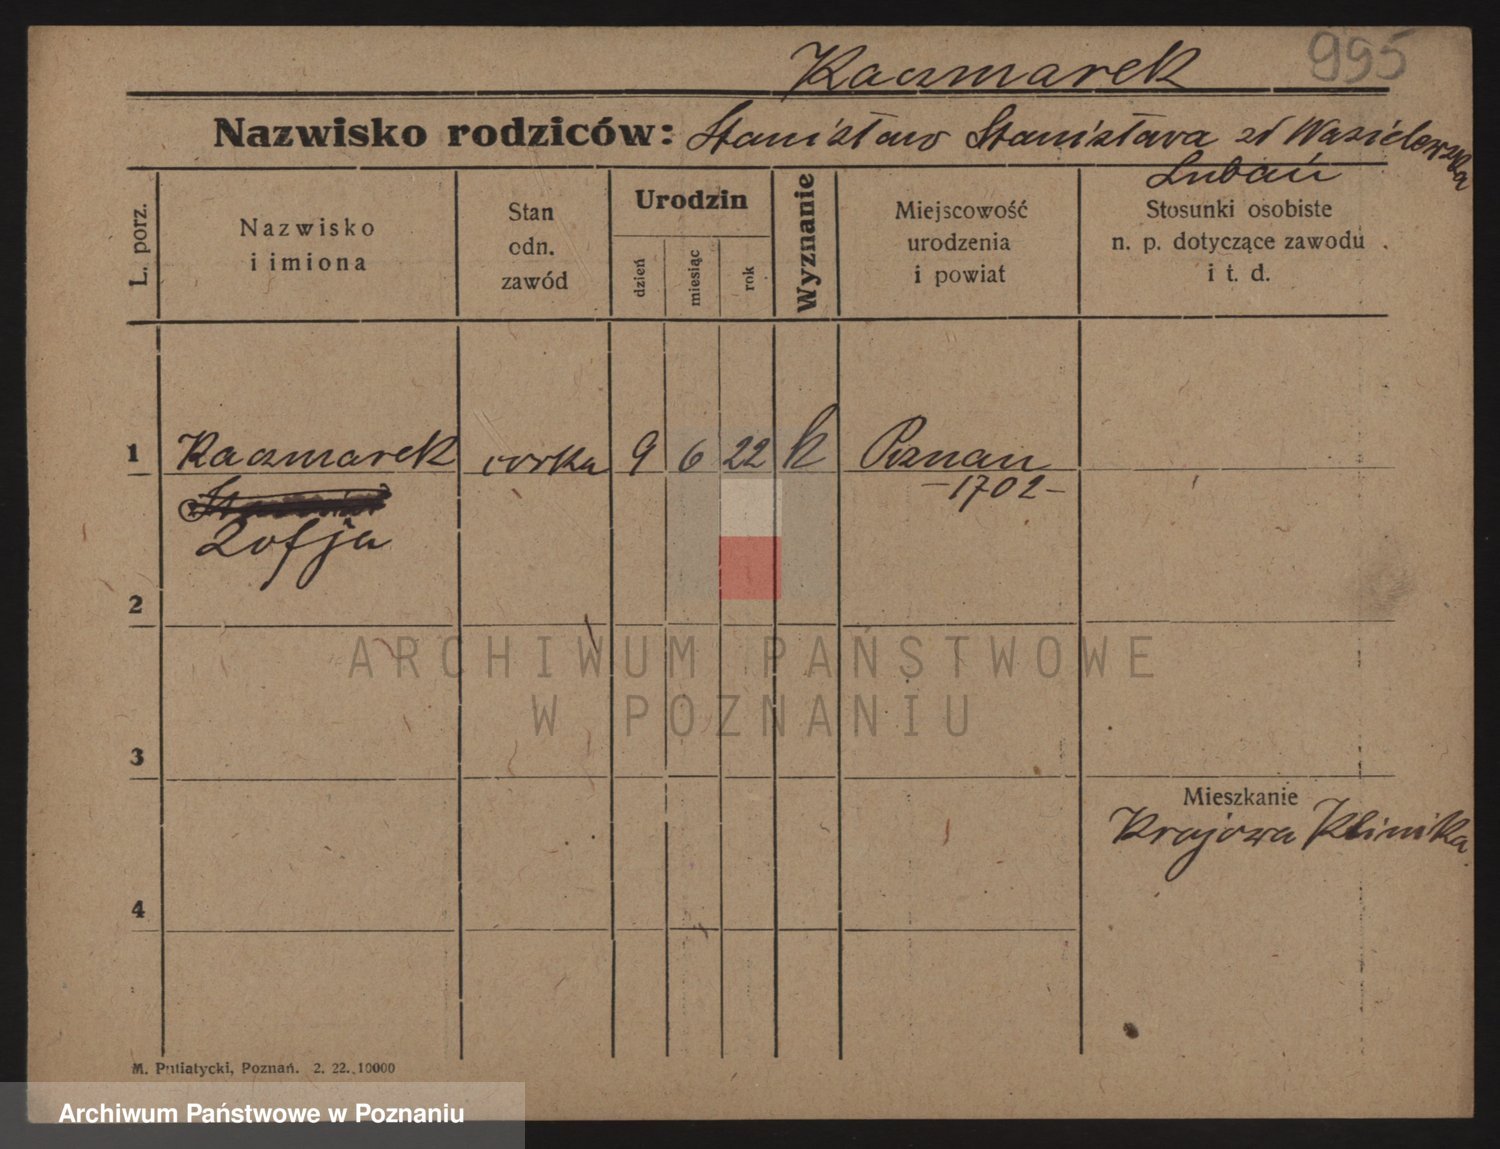 995
Kaczmarek
Nazwisko rodziców: Stanisław Stanisława zd Wasielewska
Lubań
L. porz.
Nazwisko
i imiona
Stan
odn.
zawód
Urodzin
dzień
miesiąc
rok
Wyznanie
Miejscowość
urodzenia
i powiat
Stosunki osobiste
n. p. dotyczące zawodu
i t. d.
1 Kaczmarek corka 9 6 22 k Poznan
-1702-
Zofja
2
ARCHIWUM PAŃSTWOWE
W POZNANIU
3
Mieszkanie
Krajowa Klinika
4
M. Putiatycki, Poznań. 2. 22. 10000
Archiwum Państwowe w Poznaniu